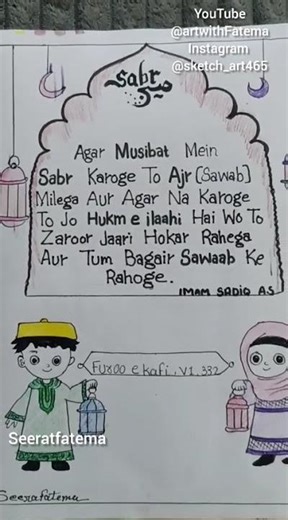 YouTube
@artwithFatema
Instagram
@sketch_art465
Sabr
صبر
Agar Musibat Mein
Sabr Karoge To Ajr (Sawab)
Milega Aur Agar Na Karoge
To Jo Hukm e ilaahi Hai Wo To
Zaroor Jaari Hokar Rahega
Aur Tum Bagair Sawaab Ke
Rahoge.
IMAM SADIQ A.S
Furoo e kafi. V1. 332
Seeratfatema
Seerafatema